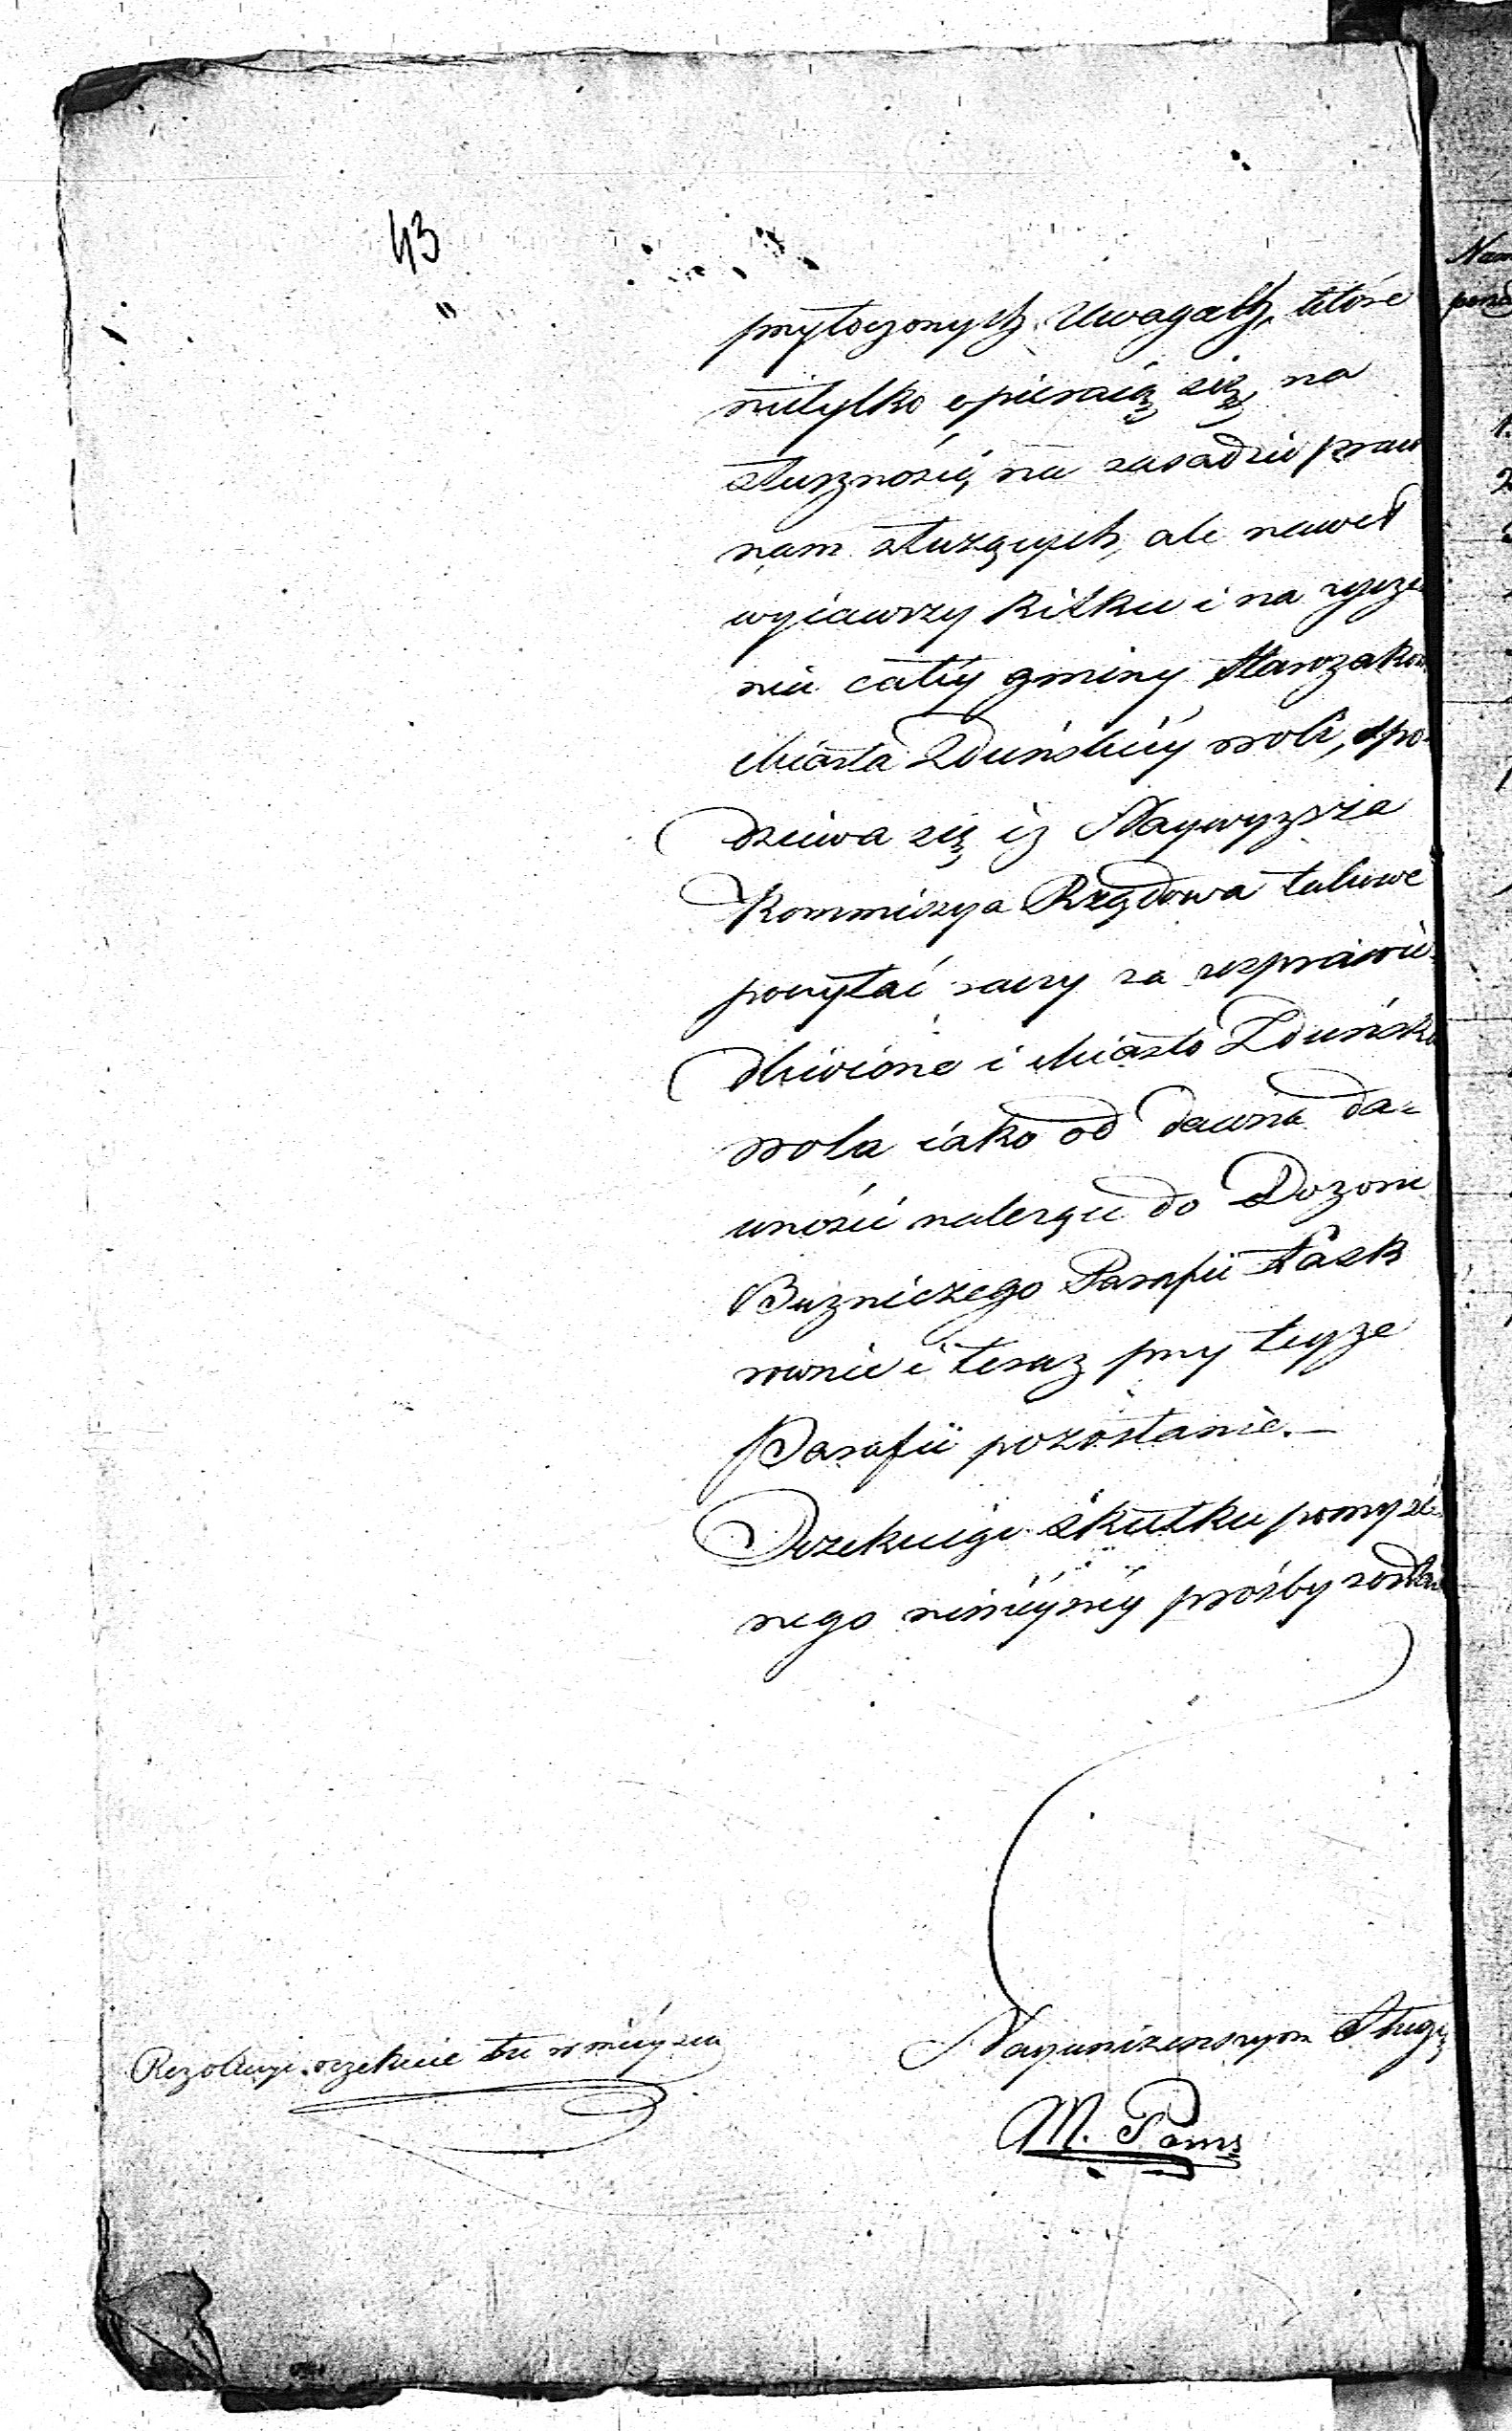 43
przytoczonych Uwagach, które
nietylko opieraią się na
słuszności, na zasadzie praw
nam służących, ale nawet
wyiąwszy kilku i na życze
niu całéy gminy Starozakon
Miasta Zduńskiéy woli, spo-
dziewa się iż Naywyższa
Kommissya Rządowa takowe
poczytać raczy za usprawie-
dliwione i Miasto Zduńska
wola iako od dawna da-
wności należące do Dozoru
Bużniczego Parafii Łask
rownie i teraz przy teyże
Parafii pozostanie.—
Oczekuiąc skutku pomyśl
nego ninieyszéy prośby zostaie
Nayuniżenszym Sługą
M. Pams
Rezolucyi oczekuie tu w mieyscu